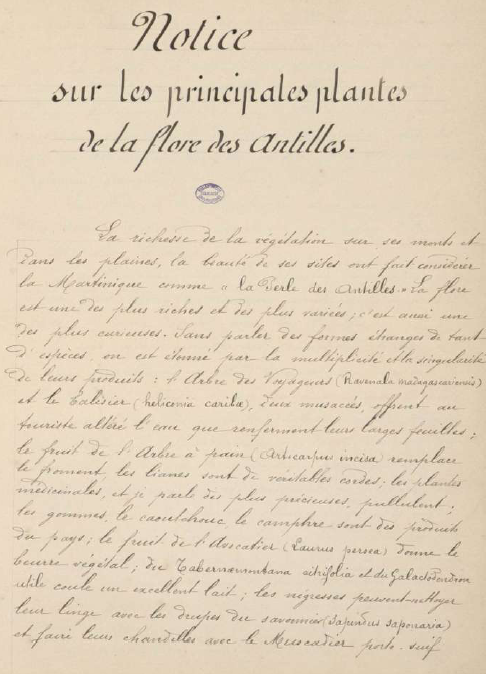 Notice
sur les principales plantes
de la flore des Antilles.
La richesse de la végétation sur ses monts et
dans les plaines, la beauté de ses sites ont fait considérer
la Martinique comme « la Perle des Antilles. » La flore
est une des plus riches et des plus variées ; c'est aussi une
des plus curieuses. Sans parler des formes étranges de tant
d'espèces, on est étonné par la multiplicité et la singularité
de leurs produits : l'Arbre des Voyageurs (Ravenala madagascariensis)
et le Balisier (heliconia cariba), deux musacées, offrent au
touriste altéré l'eau que renferment leurs larges feuilles ;
le fruit de l'Arbre à pain (Artocarpus incisa) remplace
le froment, les lianes sont de véritables cordes ; les plantes
médicinales, et je parle des plus précieuses, pullulent ;
les gommes, le caoutchouc, le camphre sont des produits
du pays ; le fruit de l'Avocatier (Laurus persea) donne le
beurre végétal ; du Tabernaemontana citrifolia et du Galactodendron
utile coule un excellent lait ; les négresses peuvent nettoyer
leur linge avec les drupes du savonnier (Sapindus saponaria)
et faire leurs chandelles avec le Muscadier porte-suif